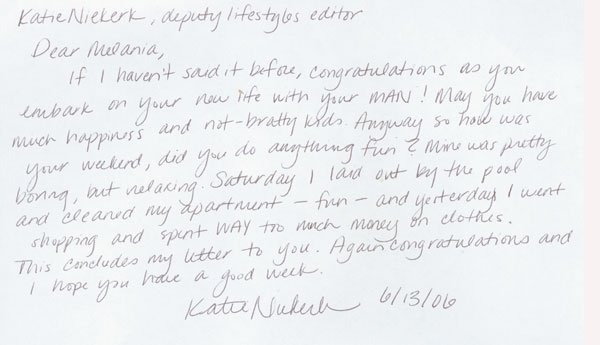 Katie Niekerk, deputy lifestyles editor
Dear Melania,
If I haven't said it before, congratulations as you
embark on your new life with your MAN! May you have
much happiness and not-bratty kids. Anyway so how was
your weekend, did you do anything fun? Mine was pretty
boring, but relaxing. Saturday I laid out by the pool
and cleaned my apartment – fun – and yesterday I went
shopping and spent WAY too much money on clothes.
This concludes my letter to you. Again congratulations and
I hope you have a good week.
Katie Niekerk 6/13/06